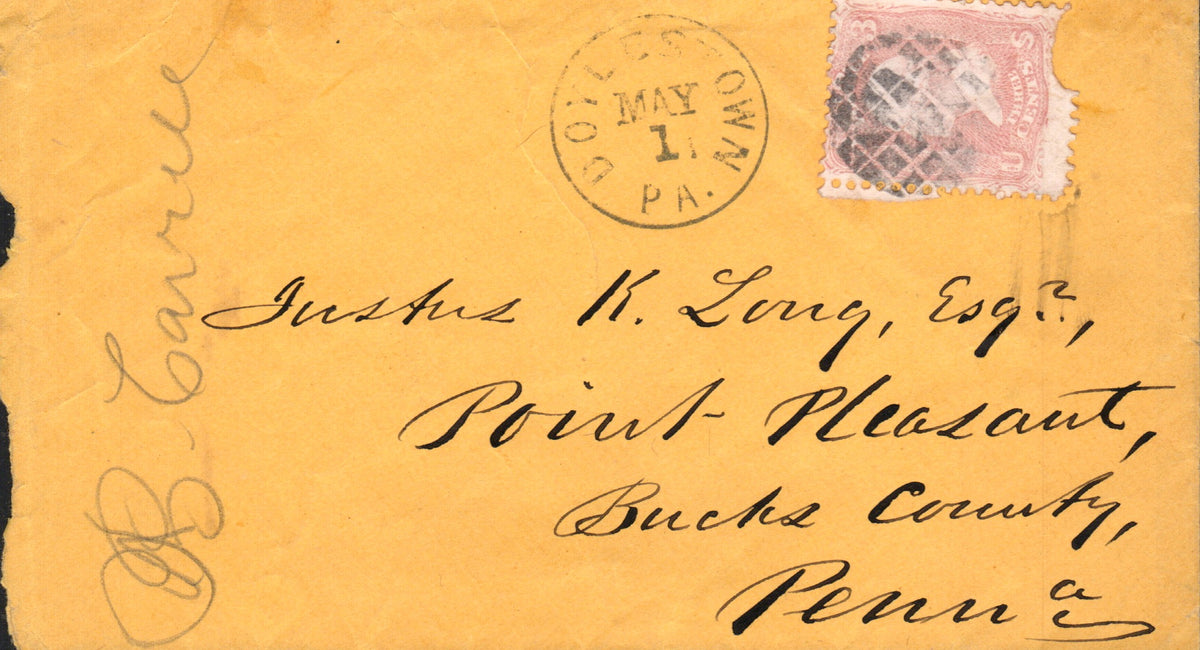 DOYLESTOWN
MAY
11
PA.
3
U THREE CENTS S
Justus K. Long, Esqr.,
Point Pleasant,
Bucks County,
Penna